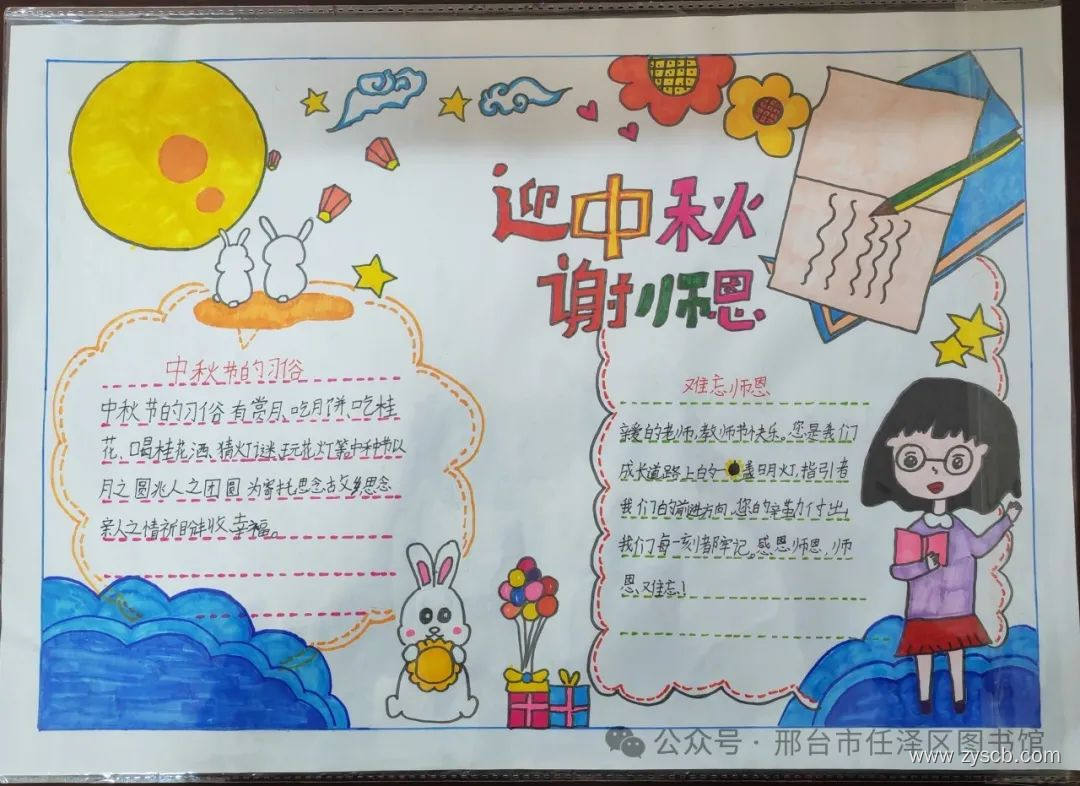 迎中秋
谢师恩
中秋节的习俗
中秋节的习俗有赏月、吃月饼、吃桂
花、喝桂花酒、猜灯谜、玩花灯等。中秋节以
月之圆兆人之团圆为寄托思念故乡,思念
亲人之情,祈盼丰收、幸福。
难忘师恩
亲爱的老师,教师节快乐。您是我们
成长道路上的一盏明灯,指引着
我们的前进方向。您的辛勤付出,
我们每一刻都牢记。感恩师恩,师
恩难忘!
公众号·邢台市任泽区图书馆
www.zyscb.com